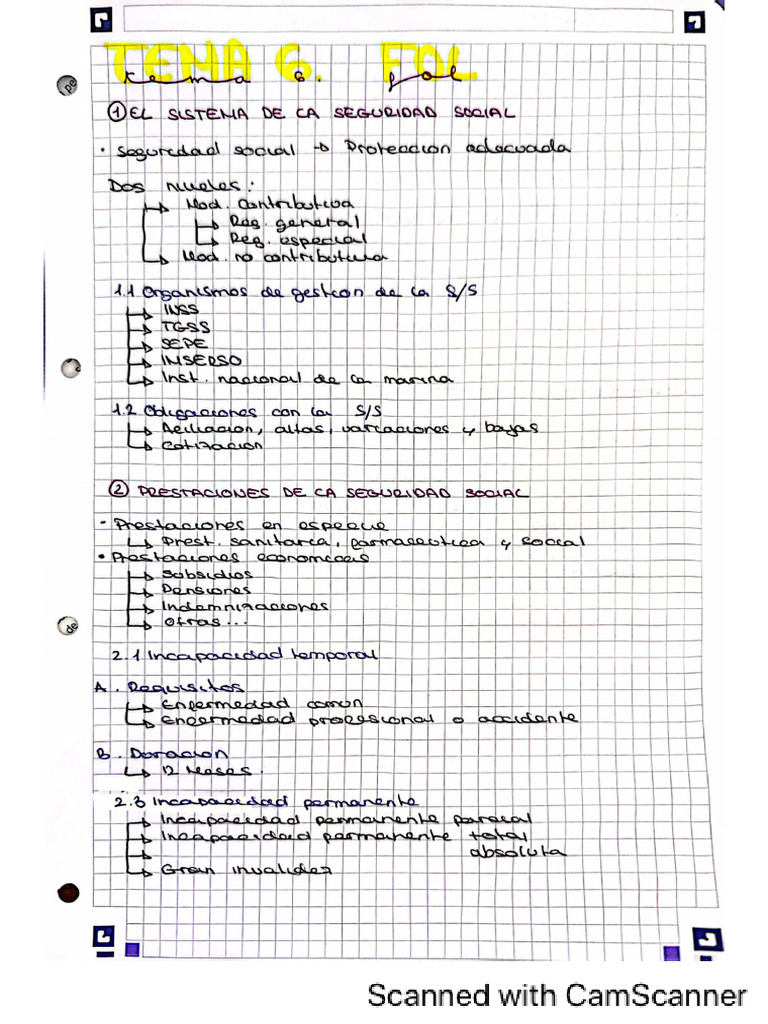 TEMA 6. FOL
tema 6. fol
① EL SISTEMA DE LA SEGURIDAD SOCIAL
• Seguridad social → Protección adecuada
Dos niveles:
↳ Mod. contributiva
↳ Reg. general
↳ Reg. especial
↳ Mod. no contributiva
1.1 Organismos de gestion de la S/S
↳ INSS
↳ TGSS
↳ SEPE
↳ IMSERSO
↳ Inst. nacional de la marina
1.2 Obligaciones con la S/S
↳ Afiliacion, altas, variaciones y bajas
↳ Cotizacion
② PRESTACIONES DE LA SEGURIDAD SOCIAL
- Prestaciones en especie
↳ Prest. sanitaria, farmaceutica y social
• Prestaciones economicas
↳ Subsidios
↳ Pensiones
↳ Indemnizaciones
↳ Otras...
2.1 Incapacidad temporal
A. Requisitos
↳ Enfermedad comun
↳ Enfermedad profesional o accidente
B. Duracion
↳ 12 Meses.
2.3 Incapacidad permanente
↳ Incapacidad permanente parcial
↳ Incapacidad permanente total
↳ absoluta
↳ Gran invalidez
Scanned with CamScanner